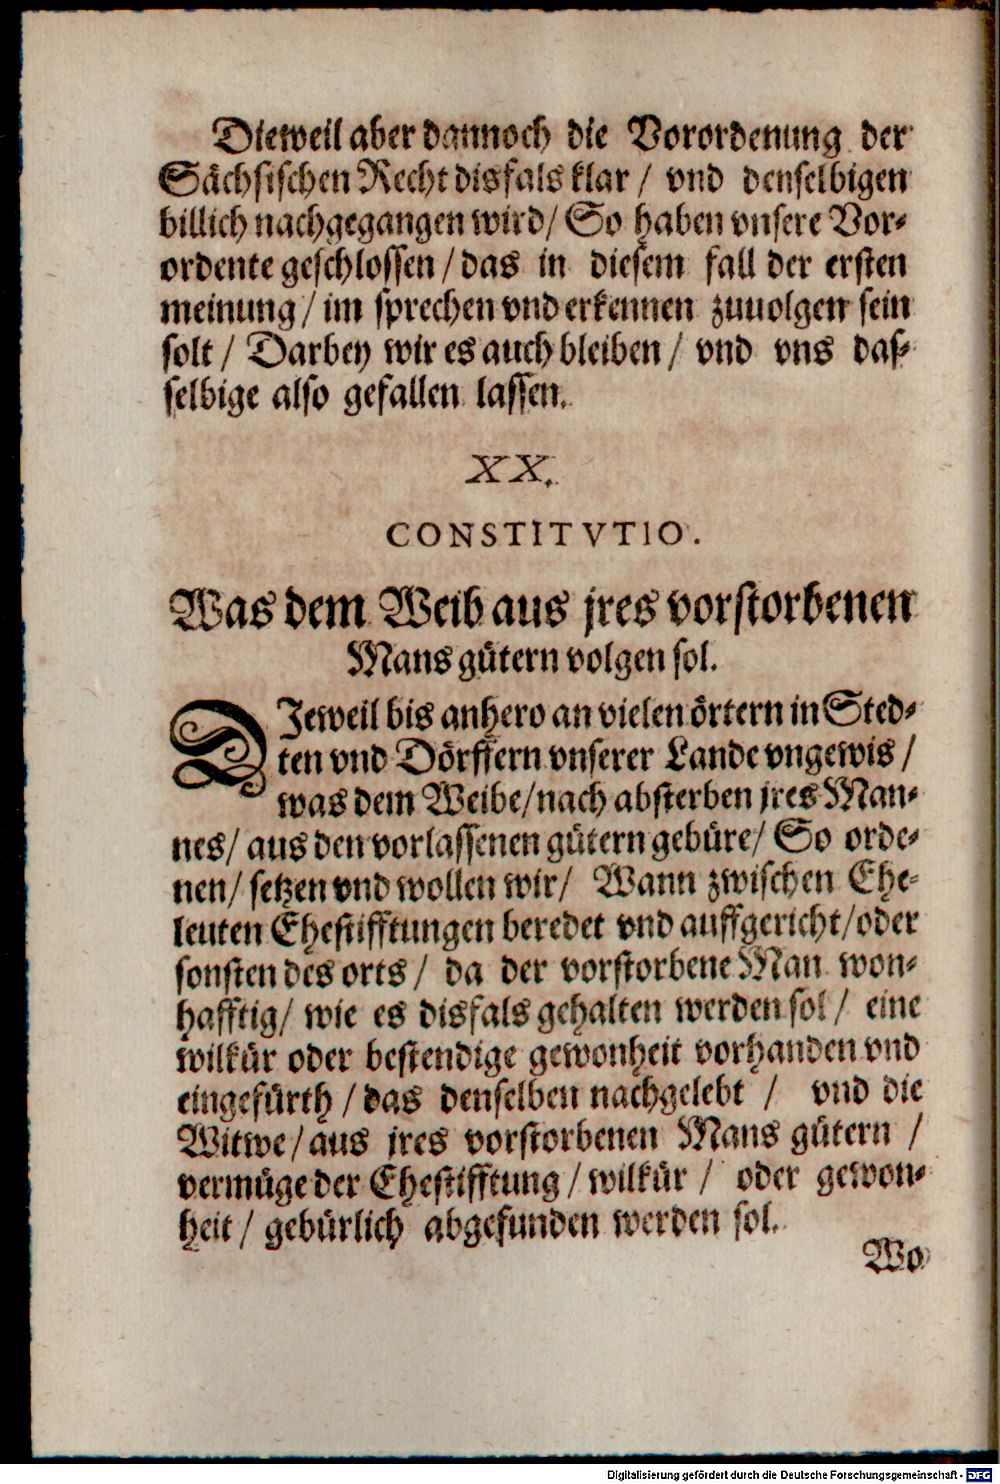 Dieweil aber dannoch die Vorordenung der
Sächsischen Recht disfals klar / vnd denselbigen
billich nachgegangen wird / So haben vnsere Vor-
ordente geschlossen / das in diesem fall der ersten
meinung / im sprechen vnd erkennen zuuolgen sein
solt / Darbey wir es auch bleiben / vnd vns das-
selbige also gefallen lassen.
XX.
CONSTITVTIO.
Was dem Weib aus jres vorstorbenen
Mans gütern volgen sol.
DIeweil bis anhero an vielen örtern in Sted-
ten vnd Dörffern vnserer Lande vngewis /
was dem Weibe / nach absterben jres Man-
nes / aus den vorlassenen gütern gebüre / So orde-
nen / setzen vnd wollen wir / Wann zwischen Ehe-
leuten Ehestifftungen beredet vnd auffgericht / oder
sonsten des orts / da der vorstorbene Man won-
hafftig / wie es disfals gehalten werden sol / eine
wilkür oder bestendige gewonheit vorhanden vnd
eingefürth / das denselben nachgelebt / vnd die
Witwe / aus jres vorstorbenen Mans gütern /
vermüge der Ehestifftung / wilkür / oder gewon-
heit / gebürlich abgefunden werden sol.
Wo
Digitalisierung gefördert durch die Deutsche Forschungsgemeinschaft - DFG